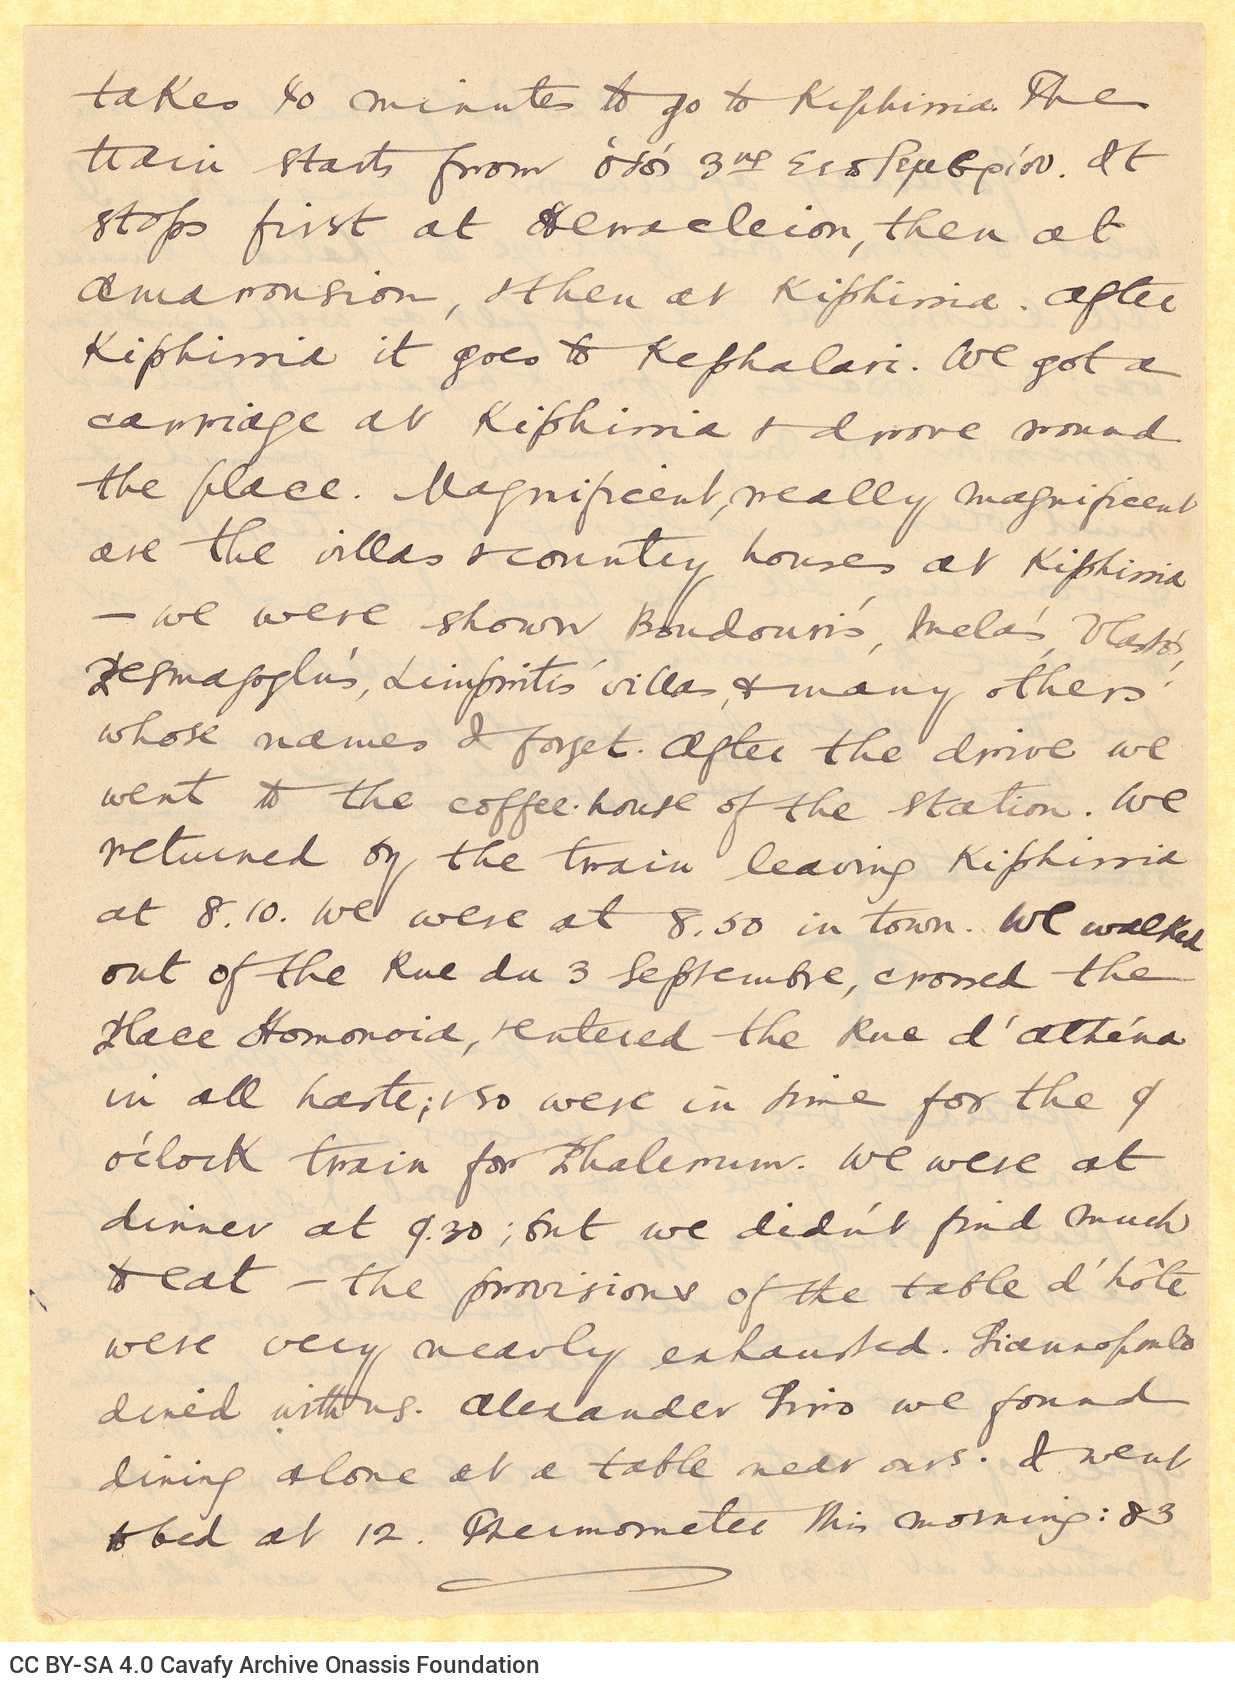 takes 40 minutes to go to Kiphissia. The
train starts from ὁδός 3ης Σεπτεμβρίου. It
stops first at Heracleion, then at
Amaroussion, & then at Kiphissia. After
Kiphissia it goes to Kephalari. We got a
carriage at Kiphissia & drove round
the place. Magnificent, really magnificent
are the villas & country houses at Kiphissia
— we were shown Boudouris', Melas', Vlastos',
villas, & many others'
whose names I forget. After the drive we
went to the coffee-house of the station. We
returned by the train leaving Kiphissia
at 8.10. We were at 8.50 in town. We walked
out of the Rue du 3 Septembre, crossed the
Place Homonoia, & entered the Rue d'Athéna
in all haste; & so were in time for the 9
o'clock train for Phalerum. We were at
dinner at 9.30; but we didn't find much
to eat — the provisions of the table d'hôte
were very nearly exhausted. Giannopoulo
dined with us. Alexander we found
dining alone at a table near ours. I went
to bed at 12. Thermometer this morning: 83
CC BY-SA 4.0 Cavafy Archive Onassis Foundation